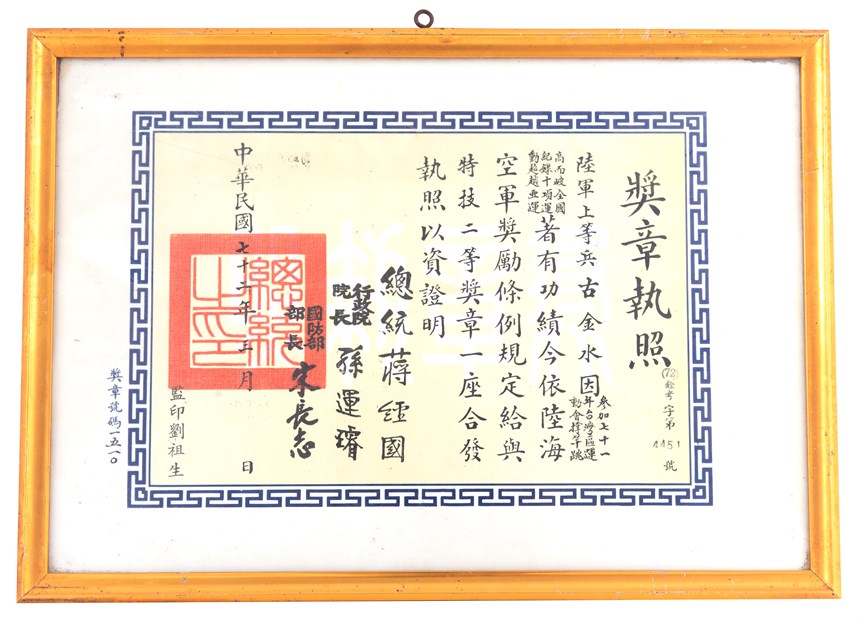 獎章執照
(72)銓考字第4451號
陸軍上等兵古金水因參加七十一年台灣區運動會撐竿跳
高而破全國紀錄十項運動超越亞運著有功績今依陸海
空軍獎勵條例規定給與
特技二等獎章一座合發
執照以資證明
總統蔣經國
行政院院長孫運璿
國防部部長宋長志
中華民國七十二年三月 日
監印劉祖生
獎章號碼一五一〇
總統之印